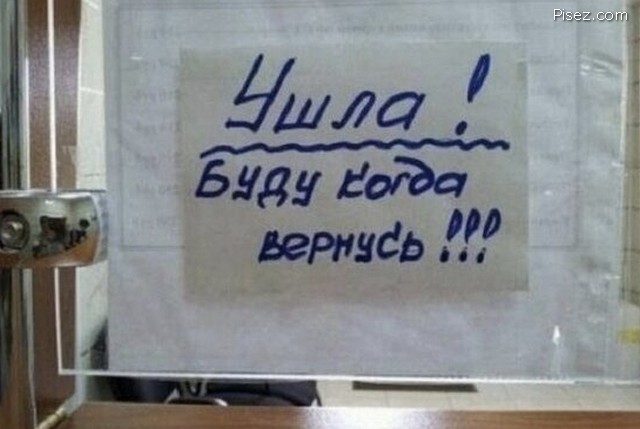 Pisez.com
Ушла!
Буду когда
вернусь!!!